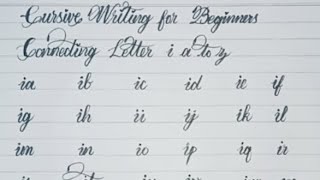 Cursive Writing for Beginners
Connecting Letter i a to z
ia ib ic id ie if
ig ih ii ij ik il
im in io ip iq ir